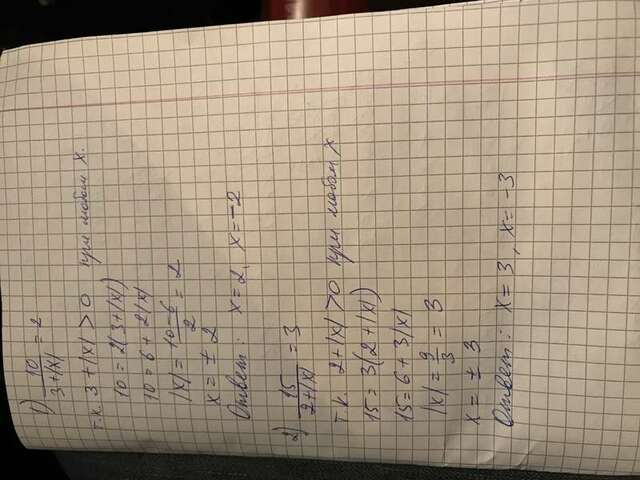 1) 10/(3+|x|) = 2
т.к. 3+|x| > 0 при любом x.
10 = 2(3+|x|)
10 = 6 + 2|x|
|x| = (10-6)/2 = 2
x = ± 2
Ответ: x = 2, x = -2
2) 15/(2+|x|) = 3
т.к. 2+|x| > 0 при любом x
15 = 3(2+|x|)
15 = 6 + 3|x|
|x| = 9/3 = 3
x = ± 3
Ответ: x = 3, x = -3